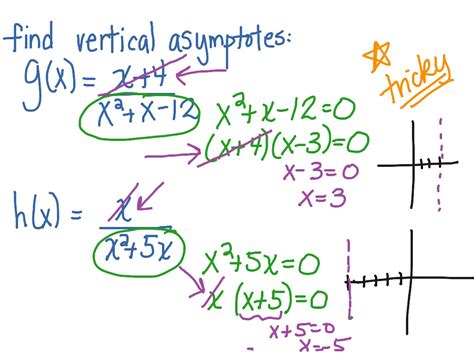 find vertical asymptotes:
g(x) = x+4
x²+x-12
x²+x-12=0
(x+4)(x-3)=0
x-3=0
x=3
tricky
h(x) = x
x²+5x
x²+5x=0
x(x+5)=0
x+5=0
x=-5